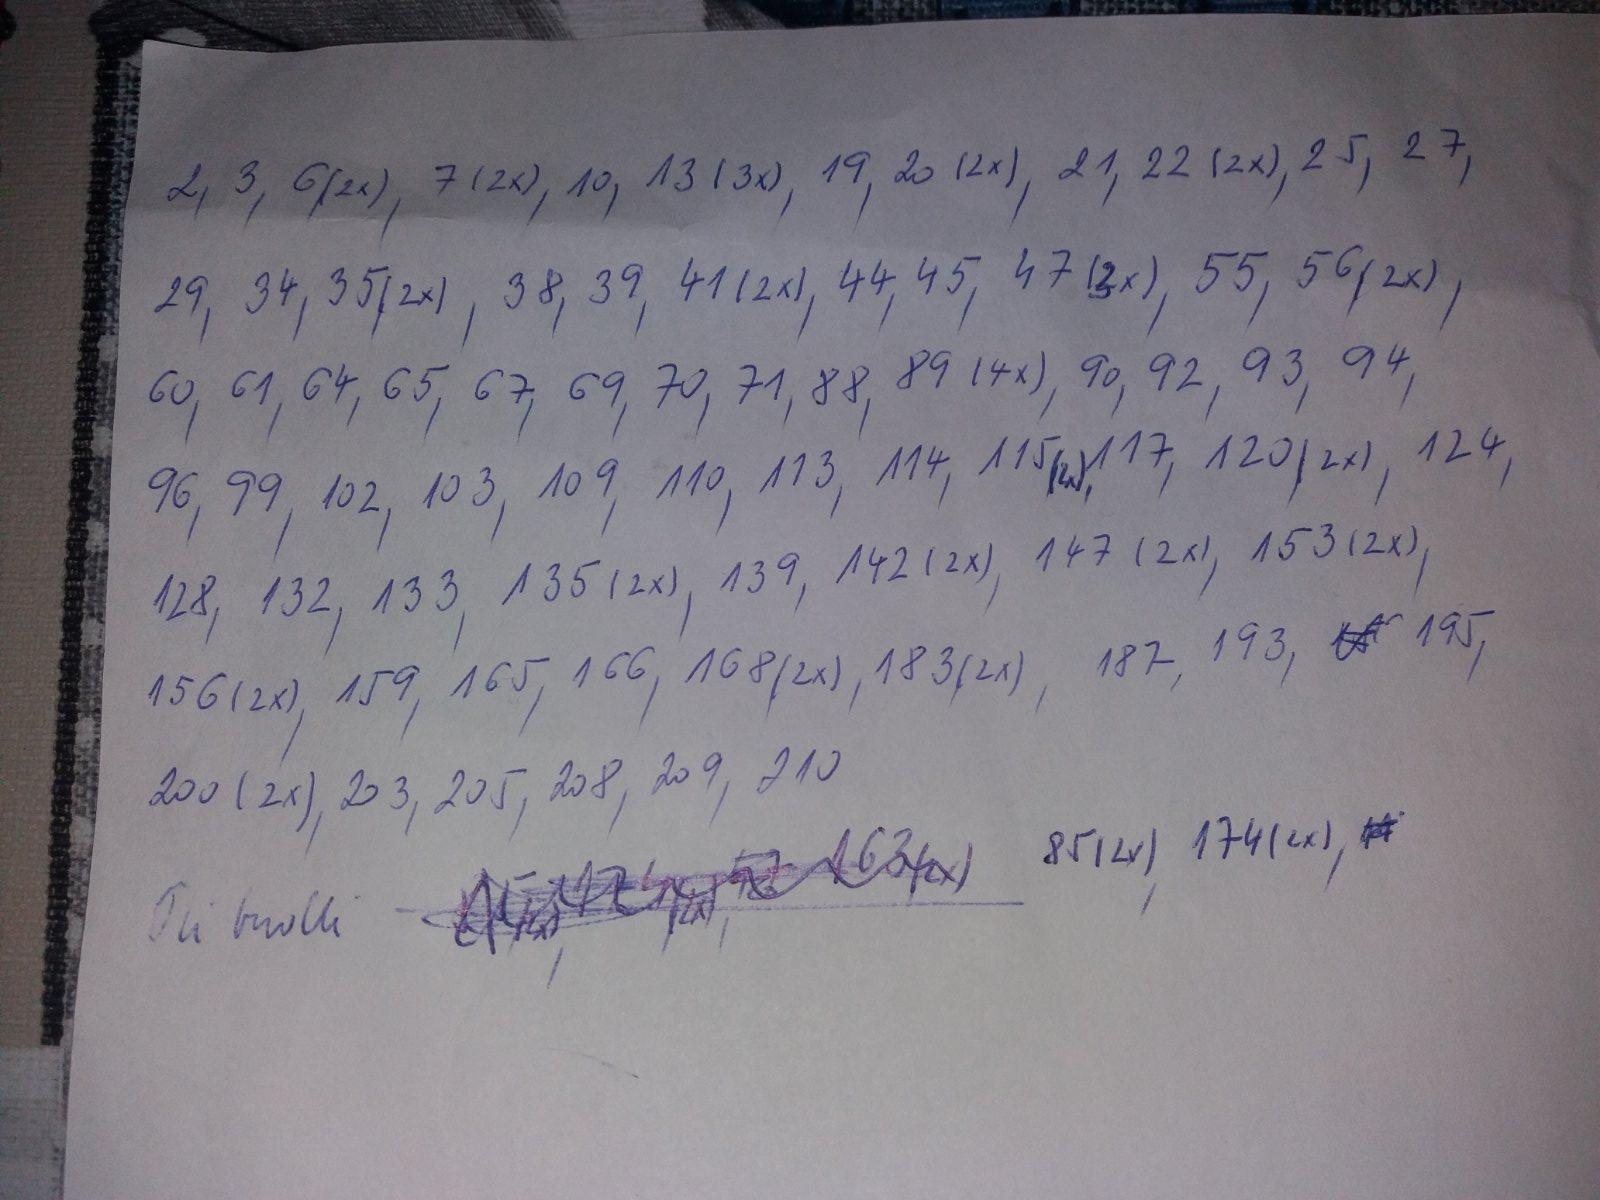 2, 3, 6(2x), 7(2x), 10, 13(3x), 19, 20(2x), 21, 22(2x), 25, 27,
29, 34, 35(2x), 38, 39, 41(2x), 44, 45, 47(3x), 55, 56(2x),
60, 61, 64, 65, 67, 69, 70, 71, 88, 89(4x), 90, 92, 93, 94,
96, 99, 102, 103, 109, 110, 113, 114, 115(2x), 117, 120(2x), 124,
128, 132, 133, 135(2x), 139, 142(2x), 147(2x), 153(2x),
156(2x), 159, 165, 166, 168(2x), 183(2x), 187, 193, 195,
200(2x), 203, 205, 208, 209, 210
163(2x) 85(2x), 174(2x),